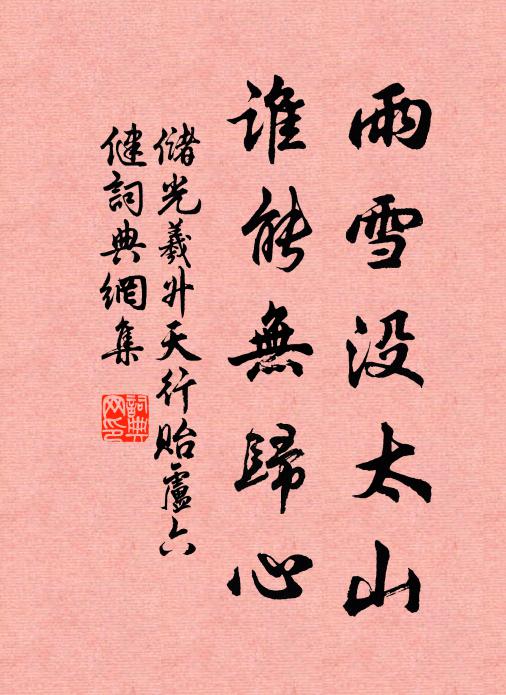 雨雪没太山
誰能無歸心
儲光羲升天行貽盧六
健詞典網集
詞典網印